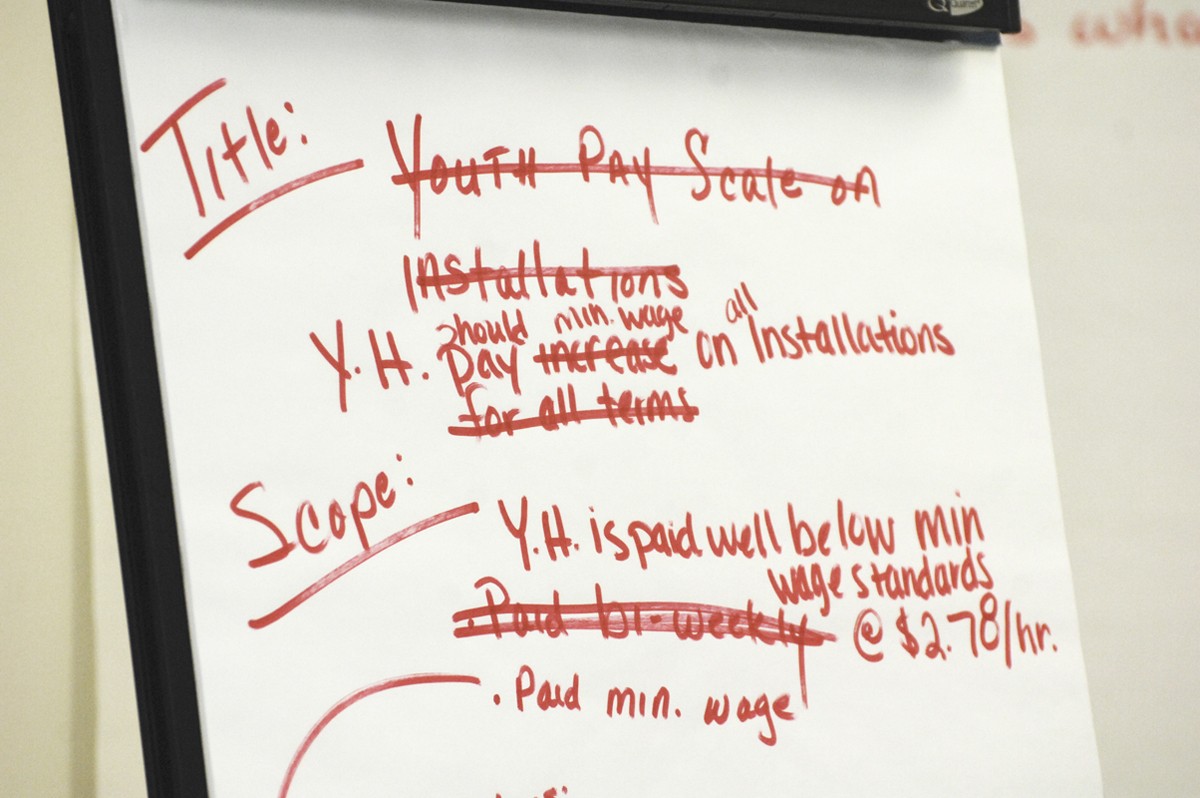 Quartet
who
Title: Youth Pay Scale on
Installations
should min. wage all
Y.H. pay increase on Installations
for all terms
Scope: Y.H. is paid well below min
wage standards
. Paid bi-weekly @ $2.78/hr.
. Paid min. wage